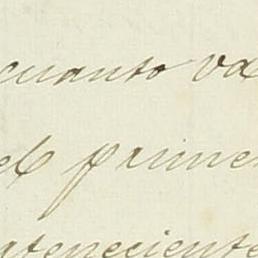 cuanto va
el primer
ateneciente